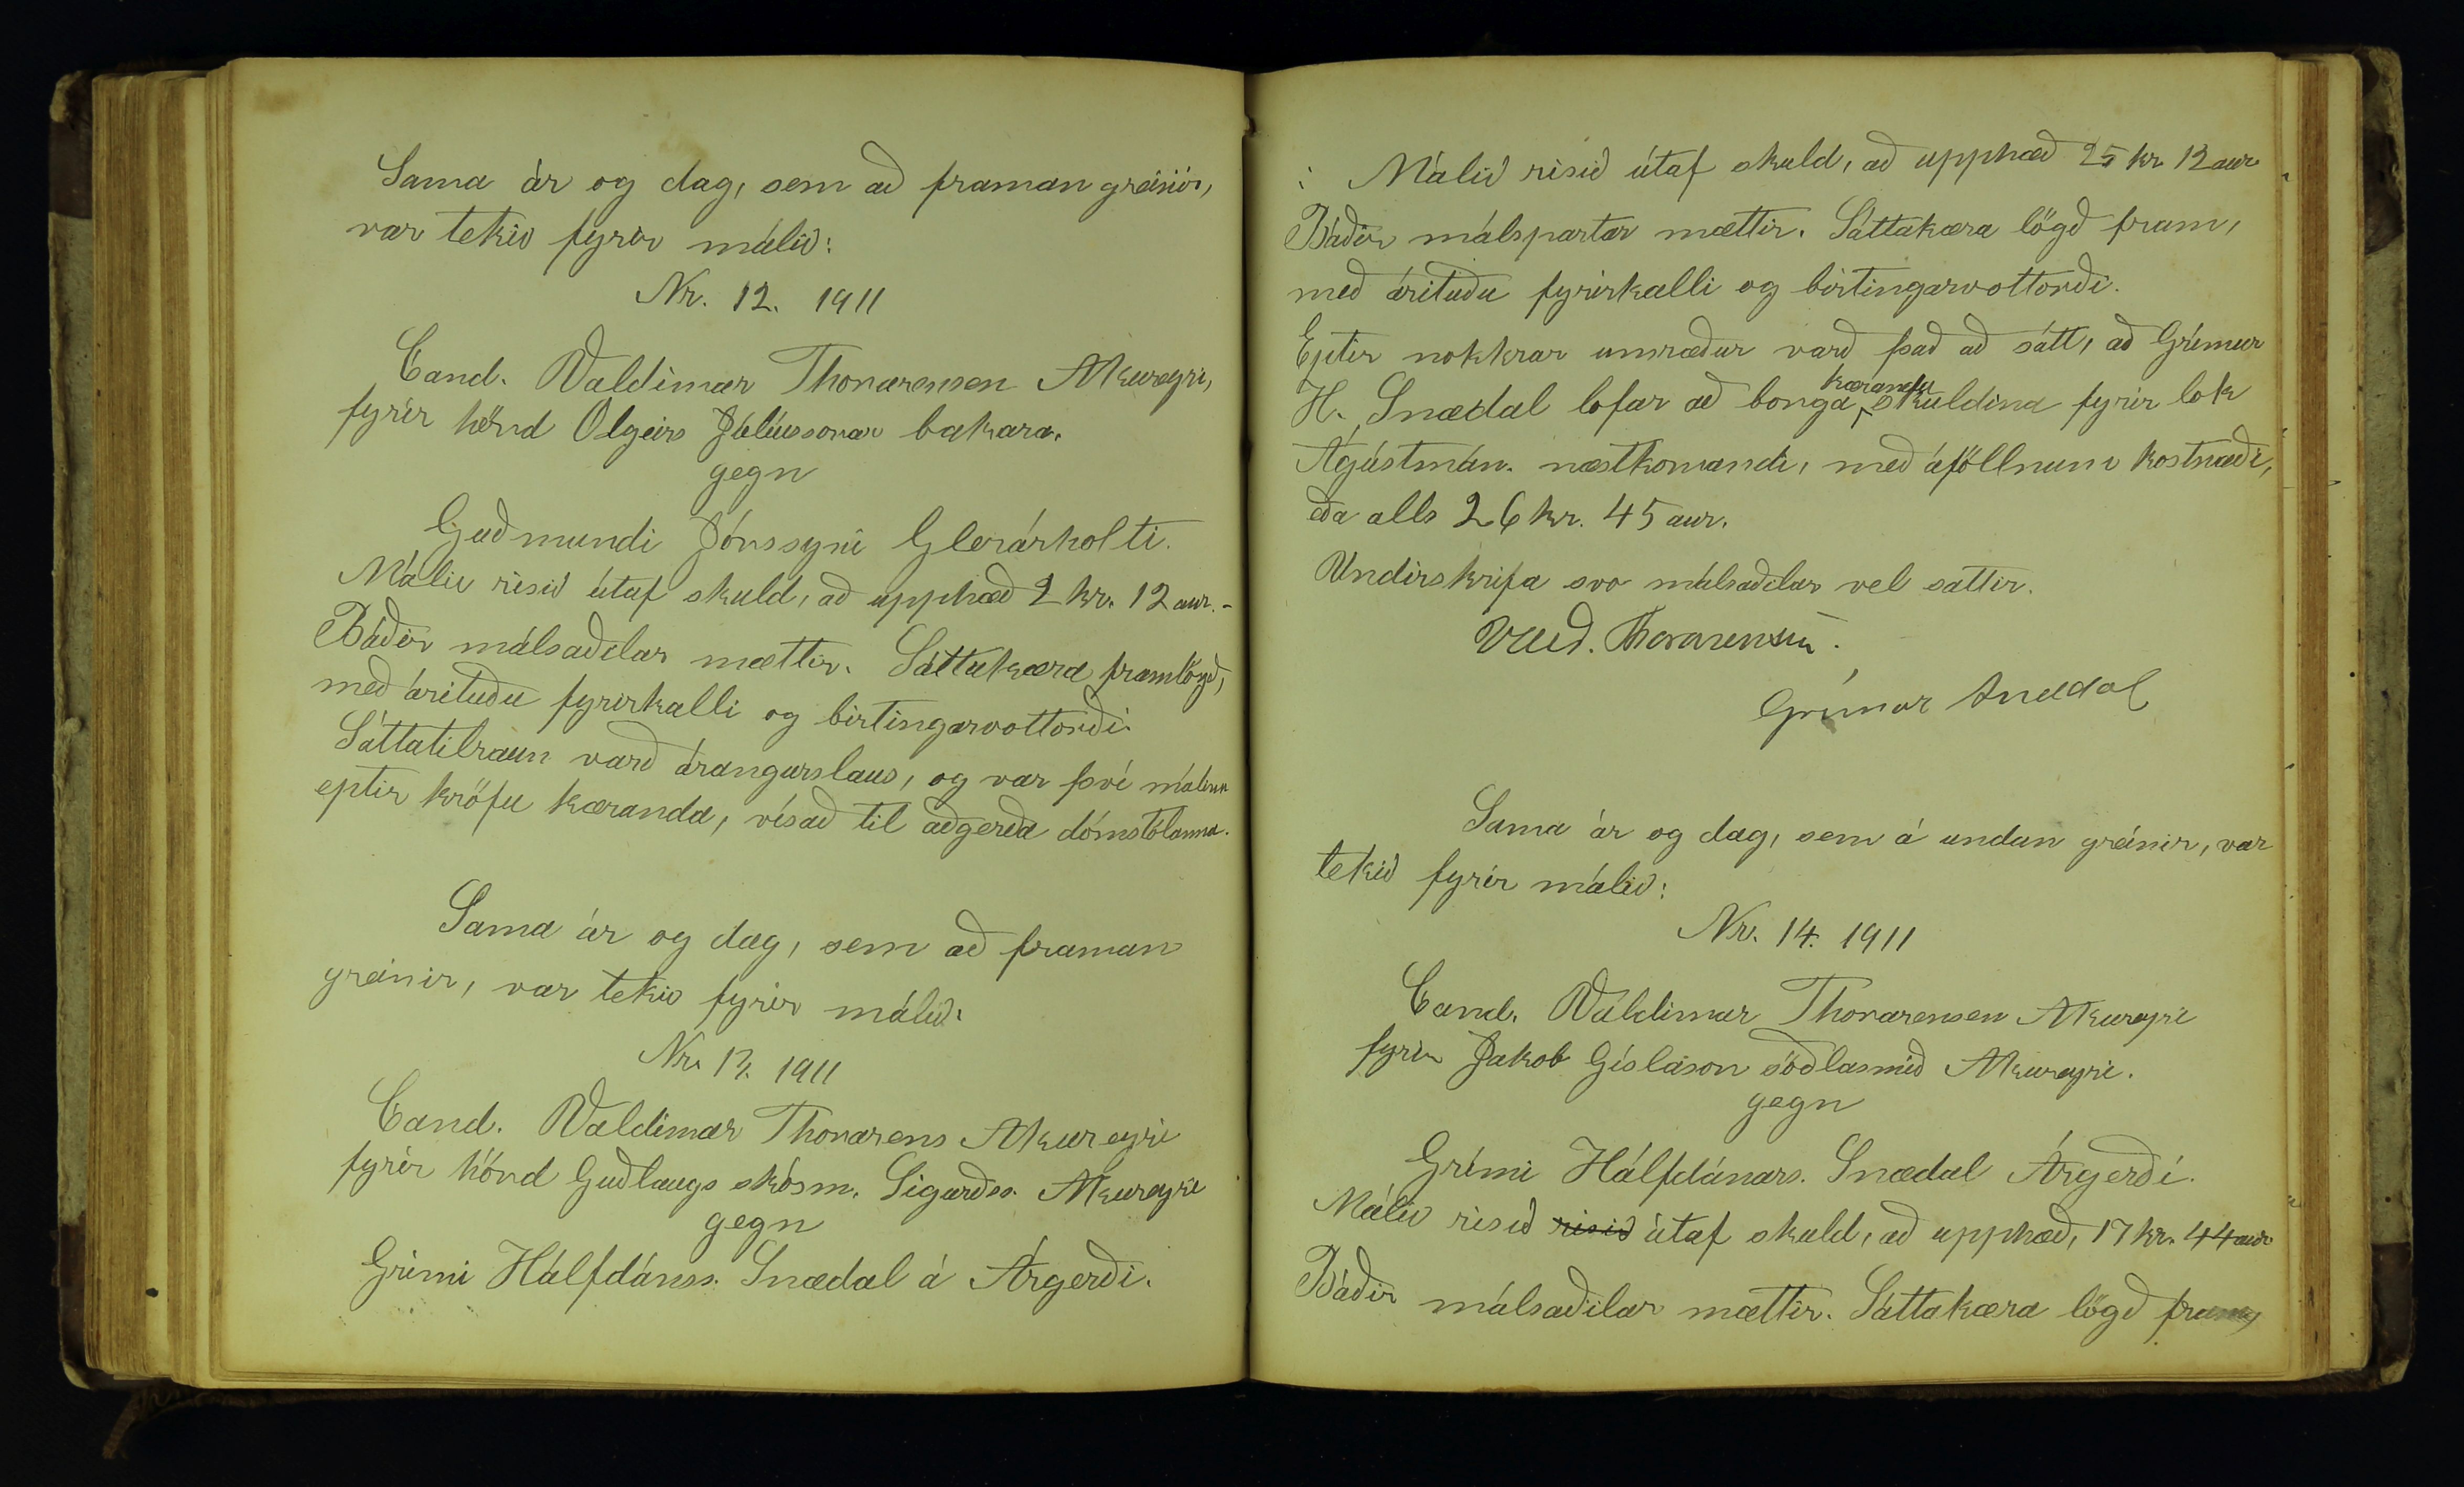 Sama ár og dag, sem að framan greinir,
var tekið fyrir málið:
Nr. 12. 1911
Cand. Valdimar Thorarensen Akureyri,
fyrir hönd Olgeirs Júlíussonar bakara.
gegn
Guðmundi Jónssyni Glerárholti.
Málið risið útaf skuld, að upphæð 2 kr. 12 aur. -
Báðir málsaðilar mættir. Sáttakæra framlögð,
með árituðu fyrirkalli og birtingarvottorði.
Sáttatilraun varð árangurslaus, og var því málinu
eptir kröfu kæranda, vísað til aðgerða dómstólanna.
Sama ár og dag, sem að framan
greinir, var tekið fyrir málið:
Nr. 13. 1911
Cand. Valdimar Thorarens Akureyri
fyrir hönd Guðlaugs skósm. Sigurðss. Akureyri
gegn
Grími Hálfdánss. Snædal á Árgerði.
Málið risið útaf skuld, að upphæð 25 kr 12 aur
Báðir málspartar mættir. Sáttakæra lögð fram,
með árituðu fyrirkalli og birtingarvottorði.
Eptir nokkrar umræður varð það að sátt, að Grímur
H. Snædal lofar að borga kæranda skuldina fyrir lok
Ágústmán. næstkomandi, með áföllnum kostnaði,
eða alls 26 kr. 45 aur.
Undirskrifa svo málsaðilar vel sáttir.
Vald. Thorarensen.
Grímur Snædal
Sama ár og dag, sem á undan greinir, var
tekið fyrir málið:
Nr. 14. 1911
Cand. Valdimar Thorarensen Akureyri
fyrir Jakob Gíslason söðlasmið Akureyri.
gegn
Grími Hálfdánars. Snædal Árgerði.
Málið risið risið útaf skuld, að upphæð, 17 kr. 44 aur
Báðir málsaðilar mættir. Sáttakæra lögð fram,